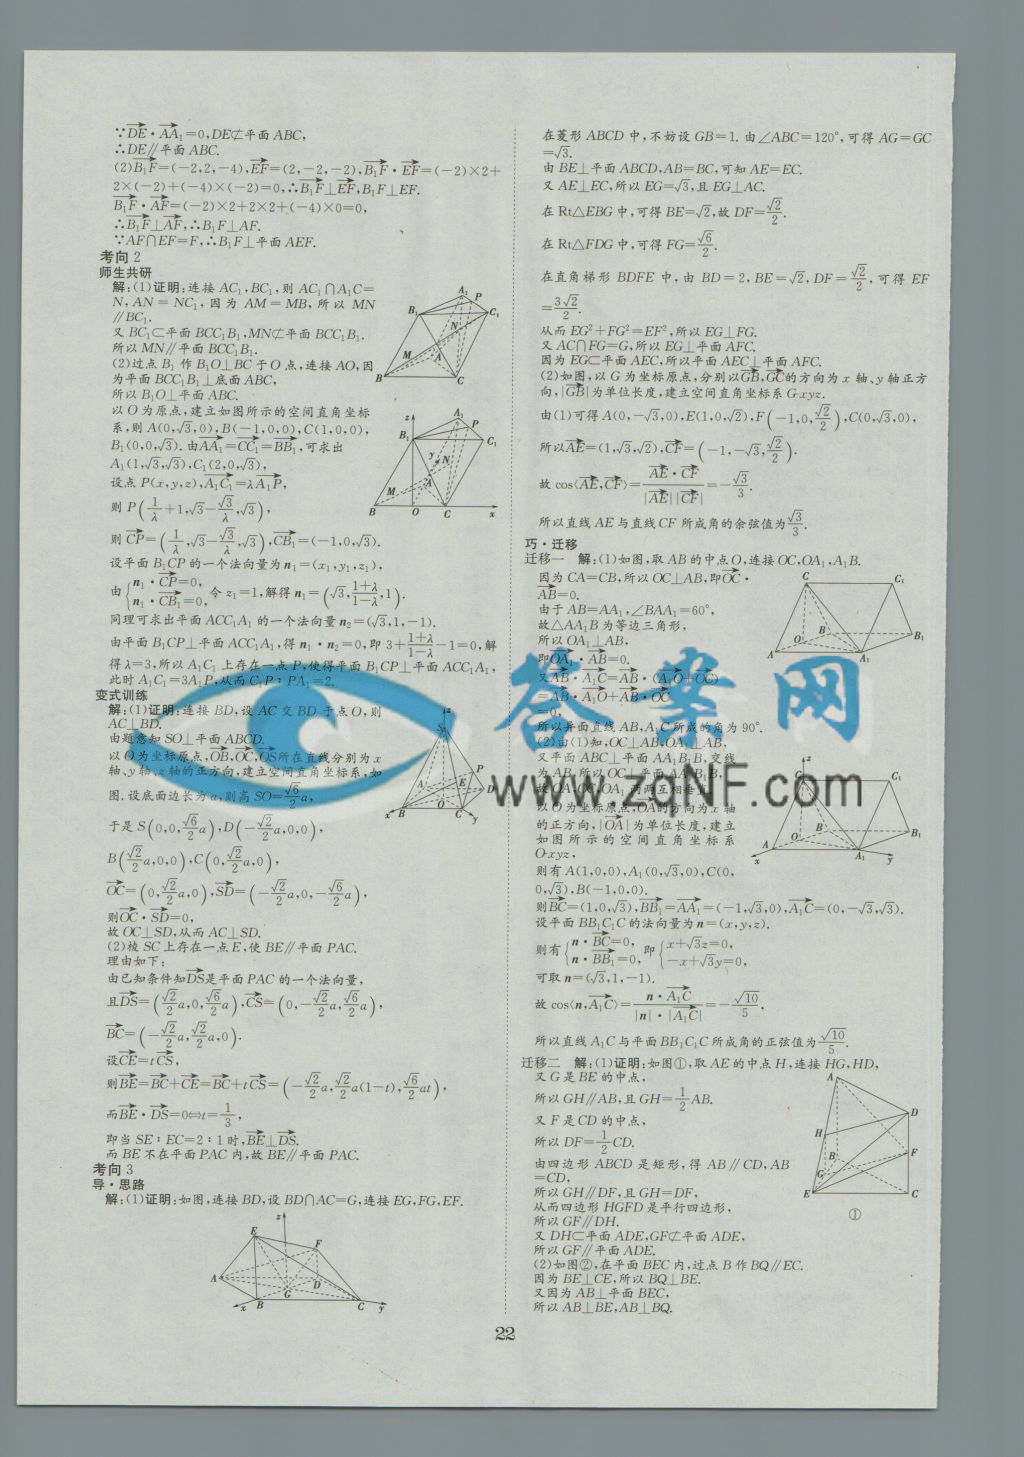 ∵DE·AA₁=0,DE⊄平面 ABC,
∴DE∥平面 ABC.
(2)B₁F=(-2,2,-4),EF=(2,-2,-2),B₁F·EF=(-2)×2+
2×(-2)+(-4)×(-2)=0,∴B₁F⊥EF,B₁F⊥EF.
B₁F·AF=(-2)×2+2×2+(-4)×0=0,
∴B₁F⊥AF,∴B₁F⊥AF.
∵AF∩EF=F,∴B₁F⊥平面 AEF.
考向 2
师生共研
解:(1)证明:连接 AC₁,BC₁,则 AC₁∩A₁C=
N,AN=NC₁,因为 AM=MB,所以 MN
∥BC₁.
又 BC₁⊂平面 BCC₁B₁,MN⊄平面 BCC₁B₁.
所以 MN∥平面 BCC₁B₁.
(2)过点 B₁ 作 B₁O⊥BC 于 O 点,连接 AO,因
为平面 BCC₁B₁⊥底面 ABC,
所以 B₁O⊥平面 ABC.
以 O 为原点,建立如图所示的空间直角坐标
系,则 A(0,√3,0),B(-1,0,0),C(1,0,0),
B₁(0,0,√3).由AA₁=CC₁=BB₁,可求出
A₁(1,√3,√3),C₁(2,0,√3),
设点 P(x,y,z),A₁C₁=λA₁P,
则 P(1/λ+1,√3-√3/λ,√3),
则 CP=(1/λ,√3-√3/λ,√3),CB₁=(-1,0,√3).
设平面 B₁CP 的一个法向量为 n₁=(x₁,y₁,z₁),
由{n₁·CP=0, n₁·CB₁=0,令 z₁=1,解得 n₁=(√3,(1+λ)/(1-λ),1).
同理可求出平面 ACC₁A₁ 的一个法向量 n₂=(√3,1,-1).
由平面 B₁CP⊥平面 ACC₁A₁,得 n₁·n₂=0,即 3+(1+λ)/(1-λ)-1=0,解
得 λ=3,所以 A₁C₁ 上存在一点 P,使得平面 B₁CP⊥平面 ACC₁A₁,
此时 A₁C₁=3A₁P,从而 C₁P∶PA₁=2.
变式训练
解:(1)证明:连接 BD,设 AC 交 BD 于点 O,则
AC⊥BD.
由题意知 SO⊥平面 ABCD.
以 O 为坐标原点,OB,OC,OS所在直线分别为 x
轴、y 轴、z 轴的正方向,建立空间直角坐标系,如
图.设底面边长为 a,则高 SO=√6/2a,
于是 S(0,0,√6/2a),D(-√2/2a,0,0),
B(√2/2a,0,0),C(0,√2/2a,0),
OC=(0,√2/2a,0),SD=(-√2/2a,0,-√6/2a),
则OC·SD=0,
故 OC⊥SD,从而 AC⊥SD.
(2)棱 SC 上存在一点 E,使 BE∥平面 PAC.
理由如下:
由已知条件知DS是平面 PAC 的一个法向量,
且DS=(√2/2a,0,√6/2a),CS=(0,-√2/2a,√6/2a),
BC=(-√2/2a,√2/2a,0).
设CE=tCS,
则BE=BC+CE=BC+tCS=(-√2/2a,√2/2a(1-t),√6/2at),
而BE·DS=0⇔t=1/3,
即当 SE∶EC=2∶1 时,BE⊥DS.
而 BE 不在平面 PAC 内,故 BE∥平面 PAC.
考向 3
导·思路
解:(1)证明:如图,连接 BD,设 BD∩AC=G,连接 EG,FG,EF.
在菱形 ABCD 中,不妨设 GB=1.由∠ABC=120°,可得 AG=GC
=√3.
由 BE⊥平面 ABCD,AB=BC,可知 AE=EC.
又 AE⊥EC,所以 EG=√3,且 EG⊥AC.
在 Rt△EBG 中,可得 BE=√2,故 DF=√2/2.
在 Rt△FDG 中,可得 FG=√6/2.
在直角梯形 BDFE 中,由 BD=2,BE=√2,DF=√2/2,可得 EF
=3√2/2.
从而 EG²+FG²=EF²,所以 EG⊥FG.
又 AC∩FG=G,所以 EG⊥平面 AFC.
因为 EG⊂平面 AEC,所以平面 AEC⊥平面 AFC.
(2)如图,以 G 为坐标原点,分别以GB,GC的方向为 x 轴、y 轴正方
向,|GB|为单位长度,建立空间直角坐标系 G-xyz.
由(1)可得 A(0,-√3,0),E(1,0,√2),F(-1,0,√2/2),C(0,√3,0),
所以AE=(1,√3,√2),CF=(-1,-√3,√2/2).
故 cos⟨AE,CF⟩=AE·CF/|AE||CF|=-√3/3.
所以直线 AE 与直线 CF 所成角的余弦值为√3/3.
巧·迁移
迁移一 解:(1)如图,取 AB 的中点 O,连接 OC,OA₁,A₁B.
因为 CA=CB,所以 OC⊥AB,即OC·
AB=0.
由于 AB=AA₁,∠BAA₁=60°,
故△AA₁B 为等边三角形,
所以 OA₁⊥AB,
即OA₁·AB=0.
又AB·A₁C=AB·(A₁O+OC)
=AB·A₁O+AB·OC
=0,
所以异面直线 AB,A₁C 所成的角为 90°.
(2)由(1)知,OC⊥AB,OA₁⊥AB,
又平面 ABC⊥平面 AA₁B₁B,交线
为 AB,所以 OC⊥平面 AA₁B₁B,
故 OA,OC,OA₁ 两两互相垂直.
以 O 为坐标原点,OA的方向为 x 轴
的正方向,|OA|为单位长度,建立
如图所示的空间直角坐标系
O-xyz,
则有 A(1,0,0),A₁(0,√3,0),C(0,
0,√3),B(-1,0,0).
则BC=(1,0,√3),BB₁=AA₁=(-1,√3,0),A₁C=(0,-√3,√3).
设平面 BB₁C₁C 的法向量为 n=(x,y,z).
则有{n·BC=0, n·BB₁=0,即{x+√3z=0, -x+√3y=0,
可取 n=(√3,1,-1).
故 cos⟨n,A₁C⟩=n·A₁C/|n|·|A₁C|=-√10/5,
所以直线 A₁C 与平面 BB₁C₁C 所成角的正弦值为√10/5.
迁移二 解:(1)证明:如图①,取 AE 的中点 H,连接 HG,HD,
又 G 是 BE 的中点,
所以 GH∥AB,且 GH=1/2AB.
又 F 是 CD 的中点,
所以 DF=1/2CD.
由四边形 ABCD 是矩形,得 AB∥CD,AB
=CD,
所以 GH∥DF,且 GH=DF,
从而四边形 HGFD 是平行四边形,
所以 GF∥DH.
又 DH⊂平面 ADE,GF⊄平面 ADE,
所以 GF∥平面 ADE.
①
(2)如图②,在平面 BEC 内,过点 B 作 BQ∥EC.
因为 BE⊥CE,所以 BQ⊥BE.
又因为 AB⊥平面 BEC,
所以 AB⊥BE,AB⊥BQ.
22
答案网
www.zqNF.com